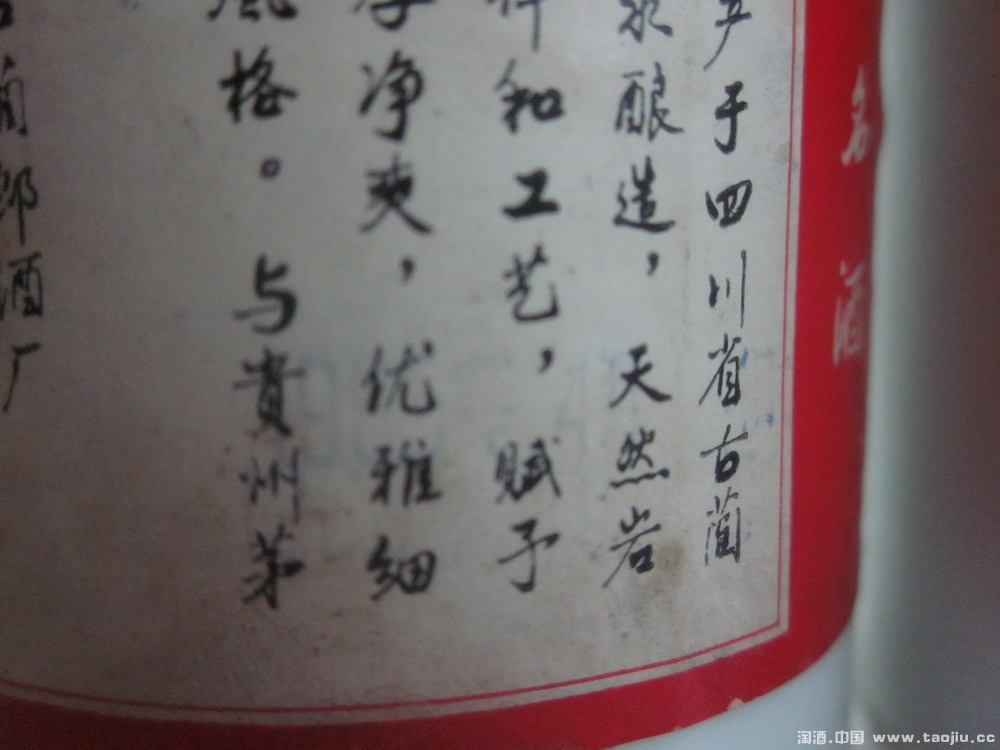 名酒
产于四川省古蔺
泉酿造，天然岩
和工艺，赋予
净爽，优雅细
风格。与贵州茅
蔺郎酒厂
淘酒.中国 www.taojiu.cc